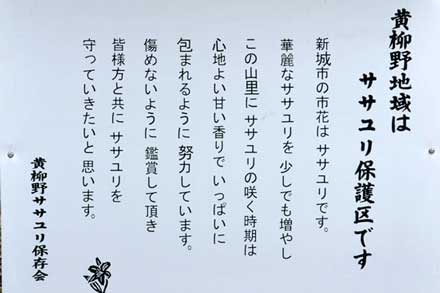 黄柳野地域は
ササユリ保護区です
新城市の市花は ササユリです。
華麗なササユリを 少しでも増やし
この山里に ササユリの咲く時期は
心地よい甘い香りで いっぱいに
包まれるように 努力しています。
傷めないように 鑑賞して頂き
皆様方と共に ササユリを
守っていきたいと 思います。
黄柳野ササユリ保存会